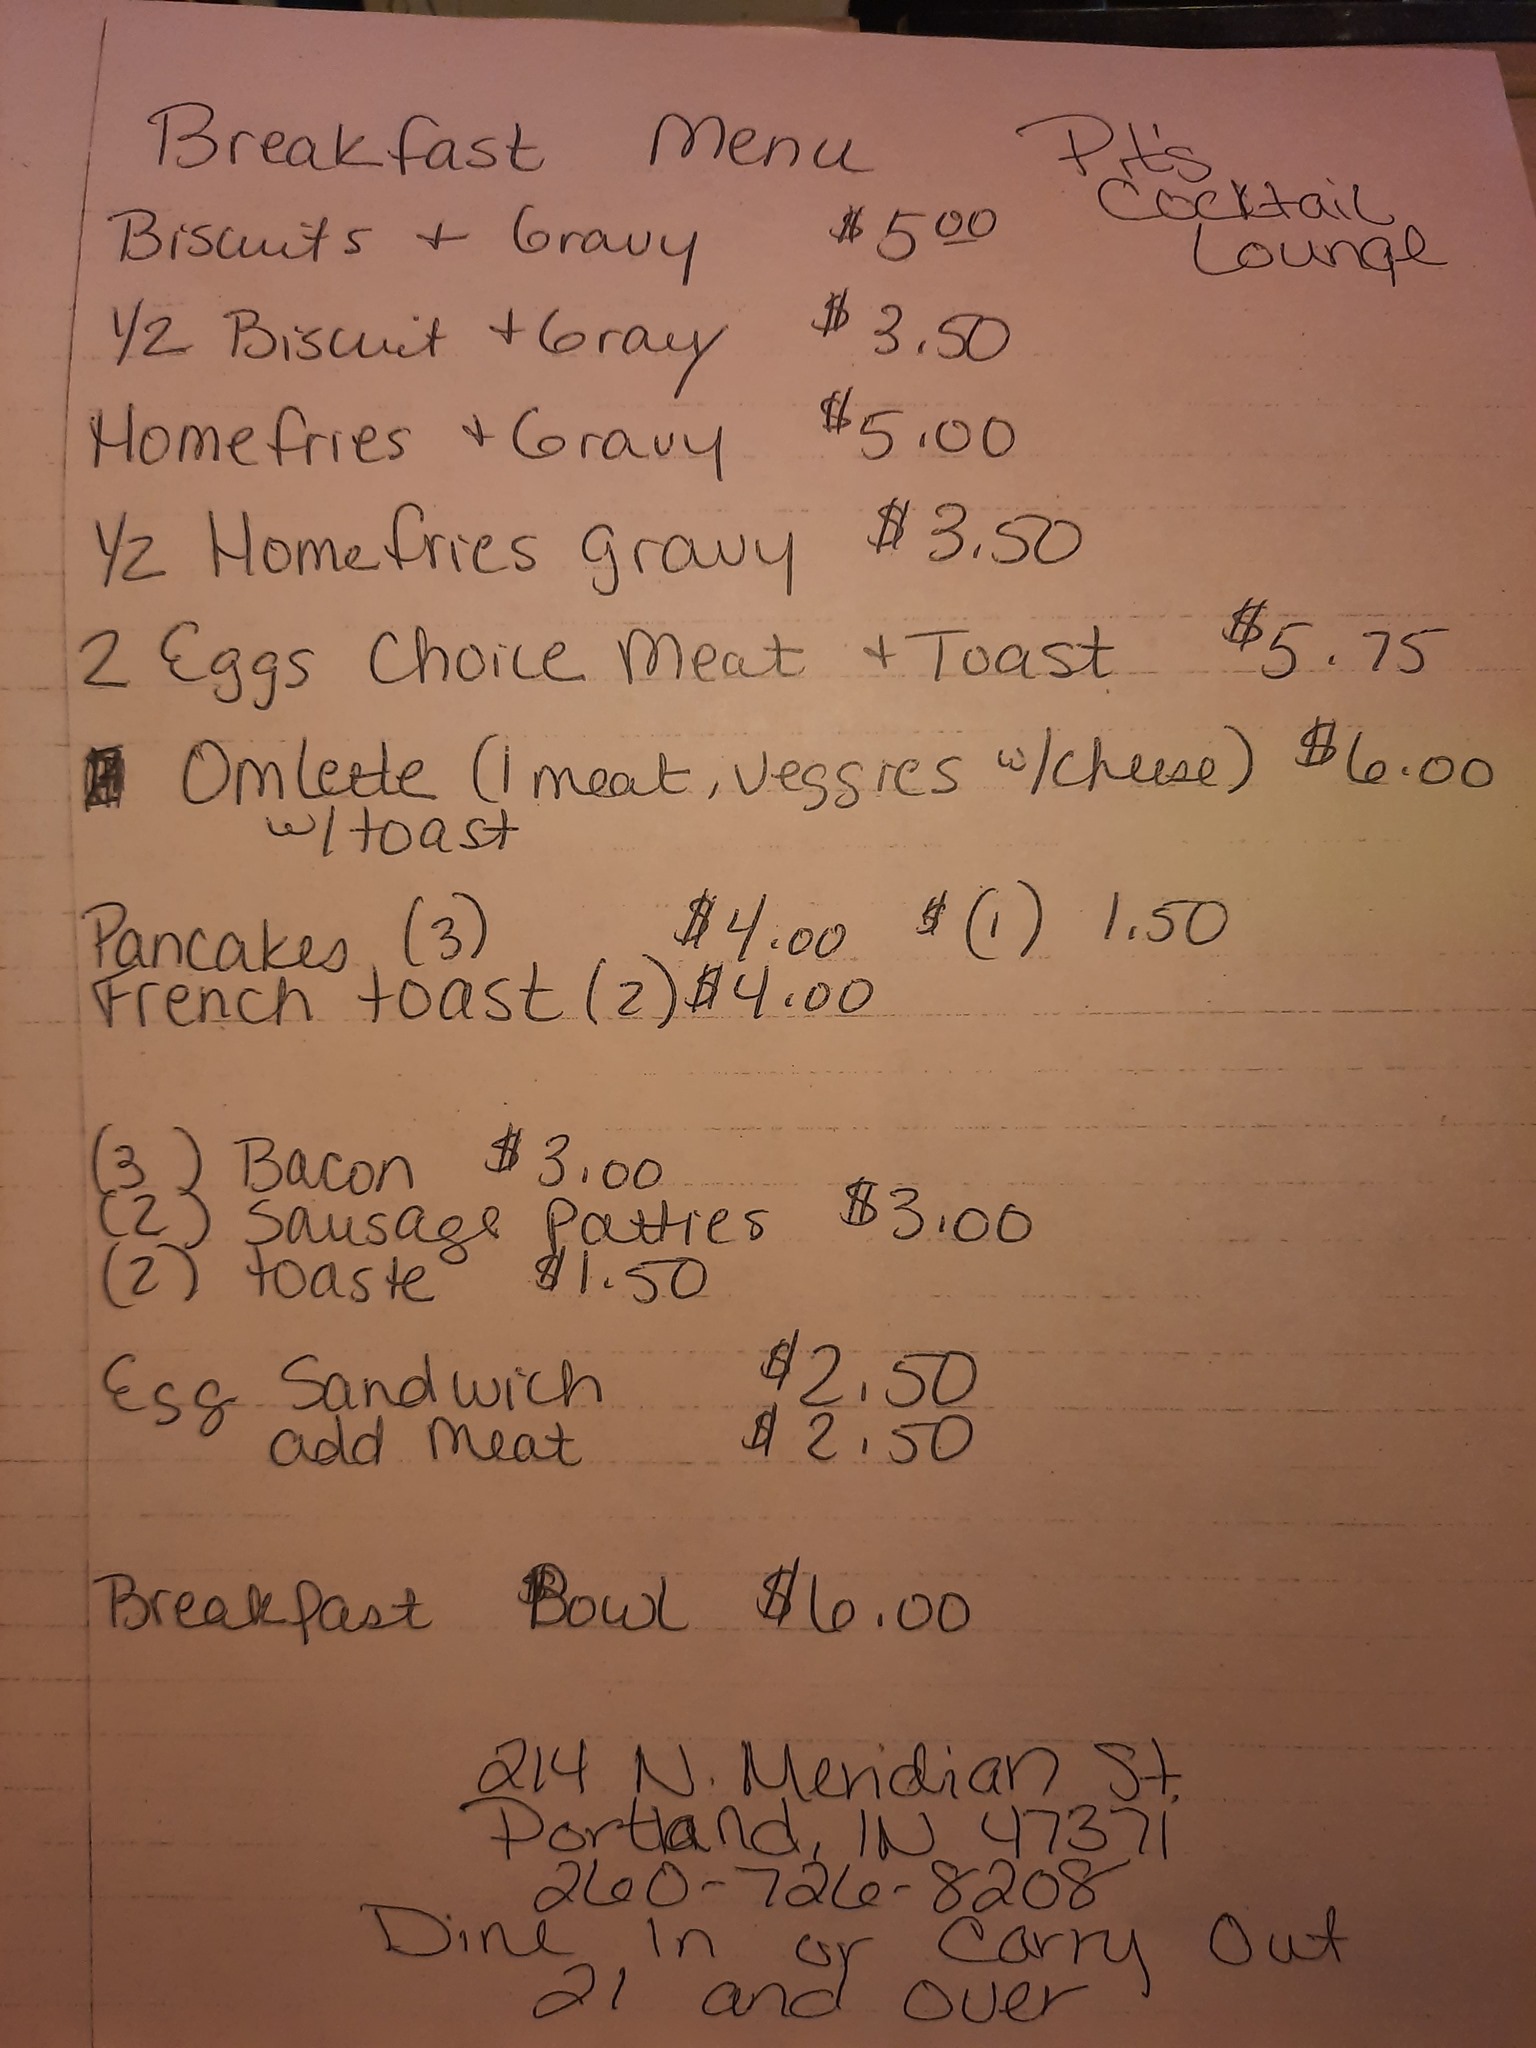 Breakfast Menu
Pit's
Cocktail
Lounge
Biscuits + Gravy $5 00
1/2 Biscuit + Gravy $3.50
Homefries + Gravy $5.00
1/2 Homefries gravy $3.50
2 Eggs Choice Meat + Toast $5.75
Omlette (1 meat, veggies w/cheese) $6.00
w/toast
Pancakes (3) $4.00 $(1) 1.50
French toast (2) $4.00
(3) Bacon $3.00
(2) Sausage Patties $3.00
(2) toaste $1.50
Egg Sandwich $2.50
add Meat $2.50
Breakfast Bowl $6.00
214 N. Meridian St.
Portland, IN 47371
260-726-8208
Dine In or Carry Out
21 and over